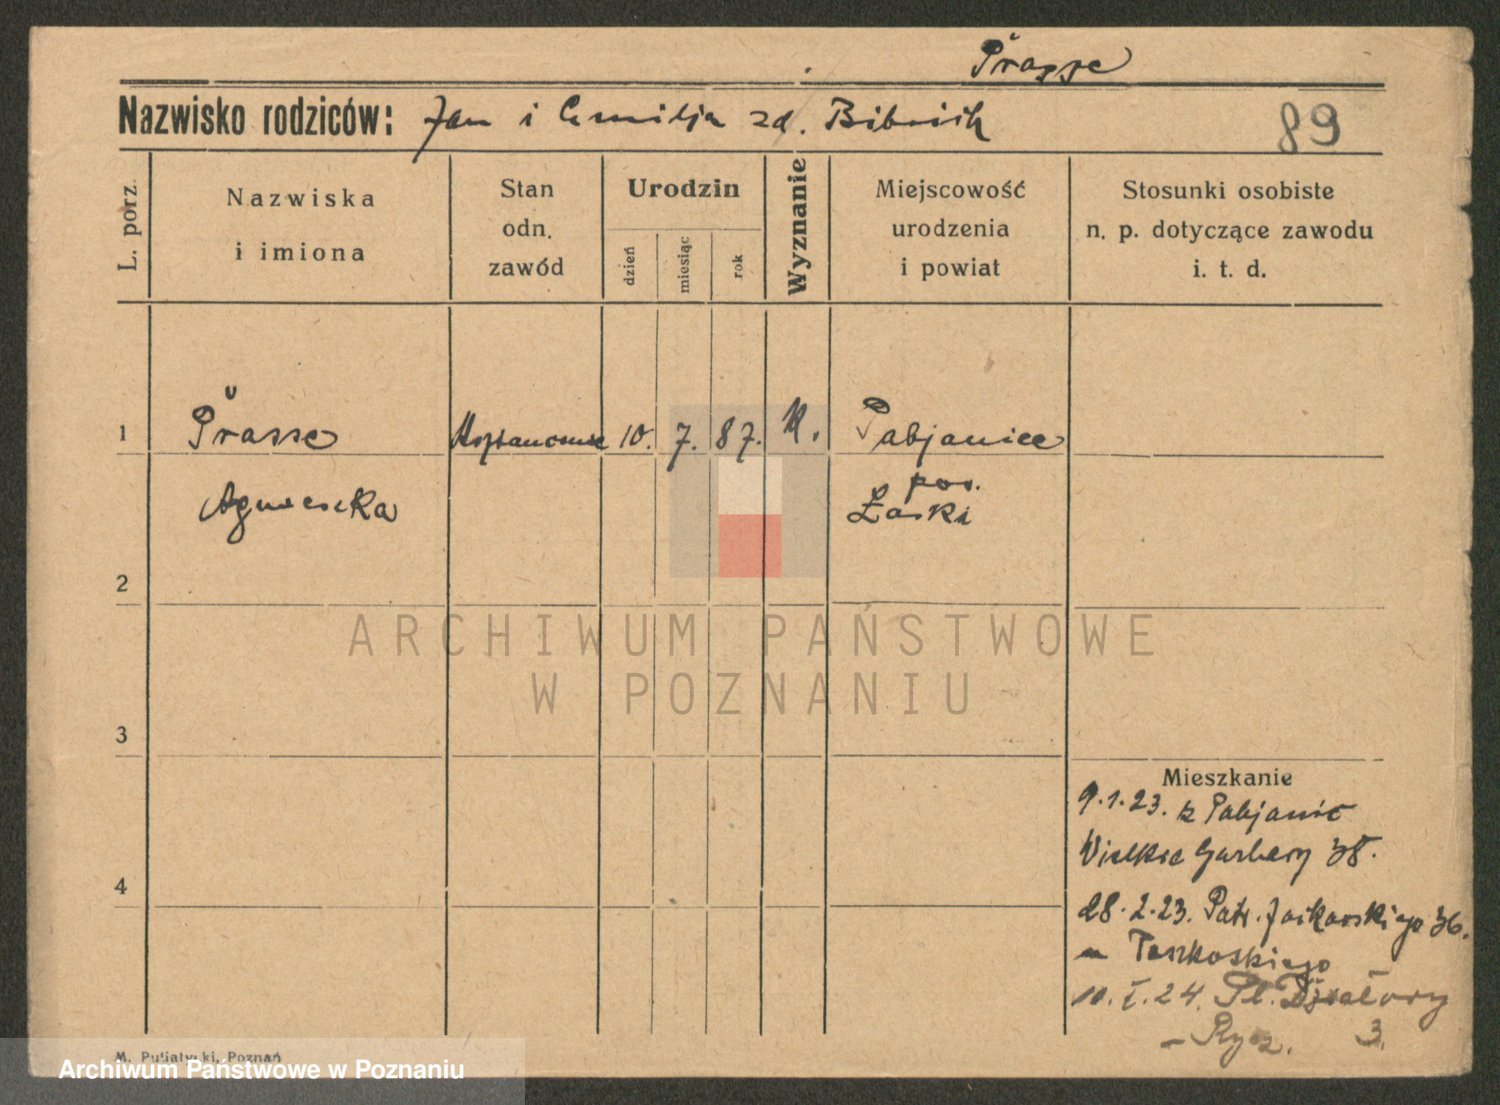 Prasse
Nazwisko rodziców: Jan i Emilja zd. 89
L. porz.
Nazwiska
i imiona
Stan
odn.
zawód
Urodzin
dzień
miesiąc
rok
Wyznanie
Miejscowość
urodzenia
i powiat
Stosunki osobiste
n. p. dotyczące zawodu
i. t. d.
1 Prasse 10. 7. 87. Pabjanice
Agnieszka pow.
Łaski
2
ARCHIWUM PAŃSTWOWE
W POZNANIU
3
Mieszkanie
9.1.23. z Pabjanic
Wielkie Garbary 38.
4
28.2.23. Patr. Jackowskiego 36.
u
10.I.24. Pl. Działowy
3.
M. Putiatycki, Poznań
Archiwum Państwowe w Poznaniu